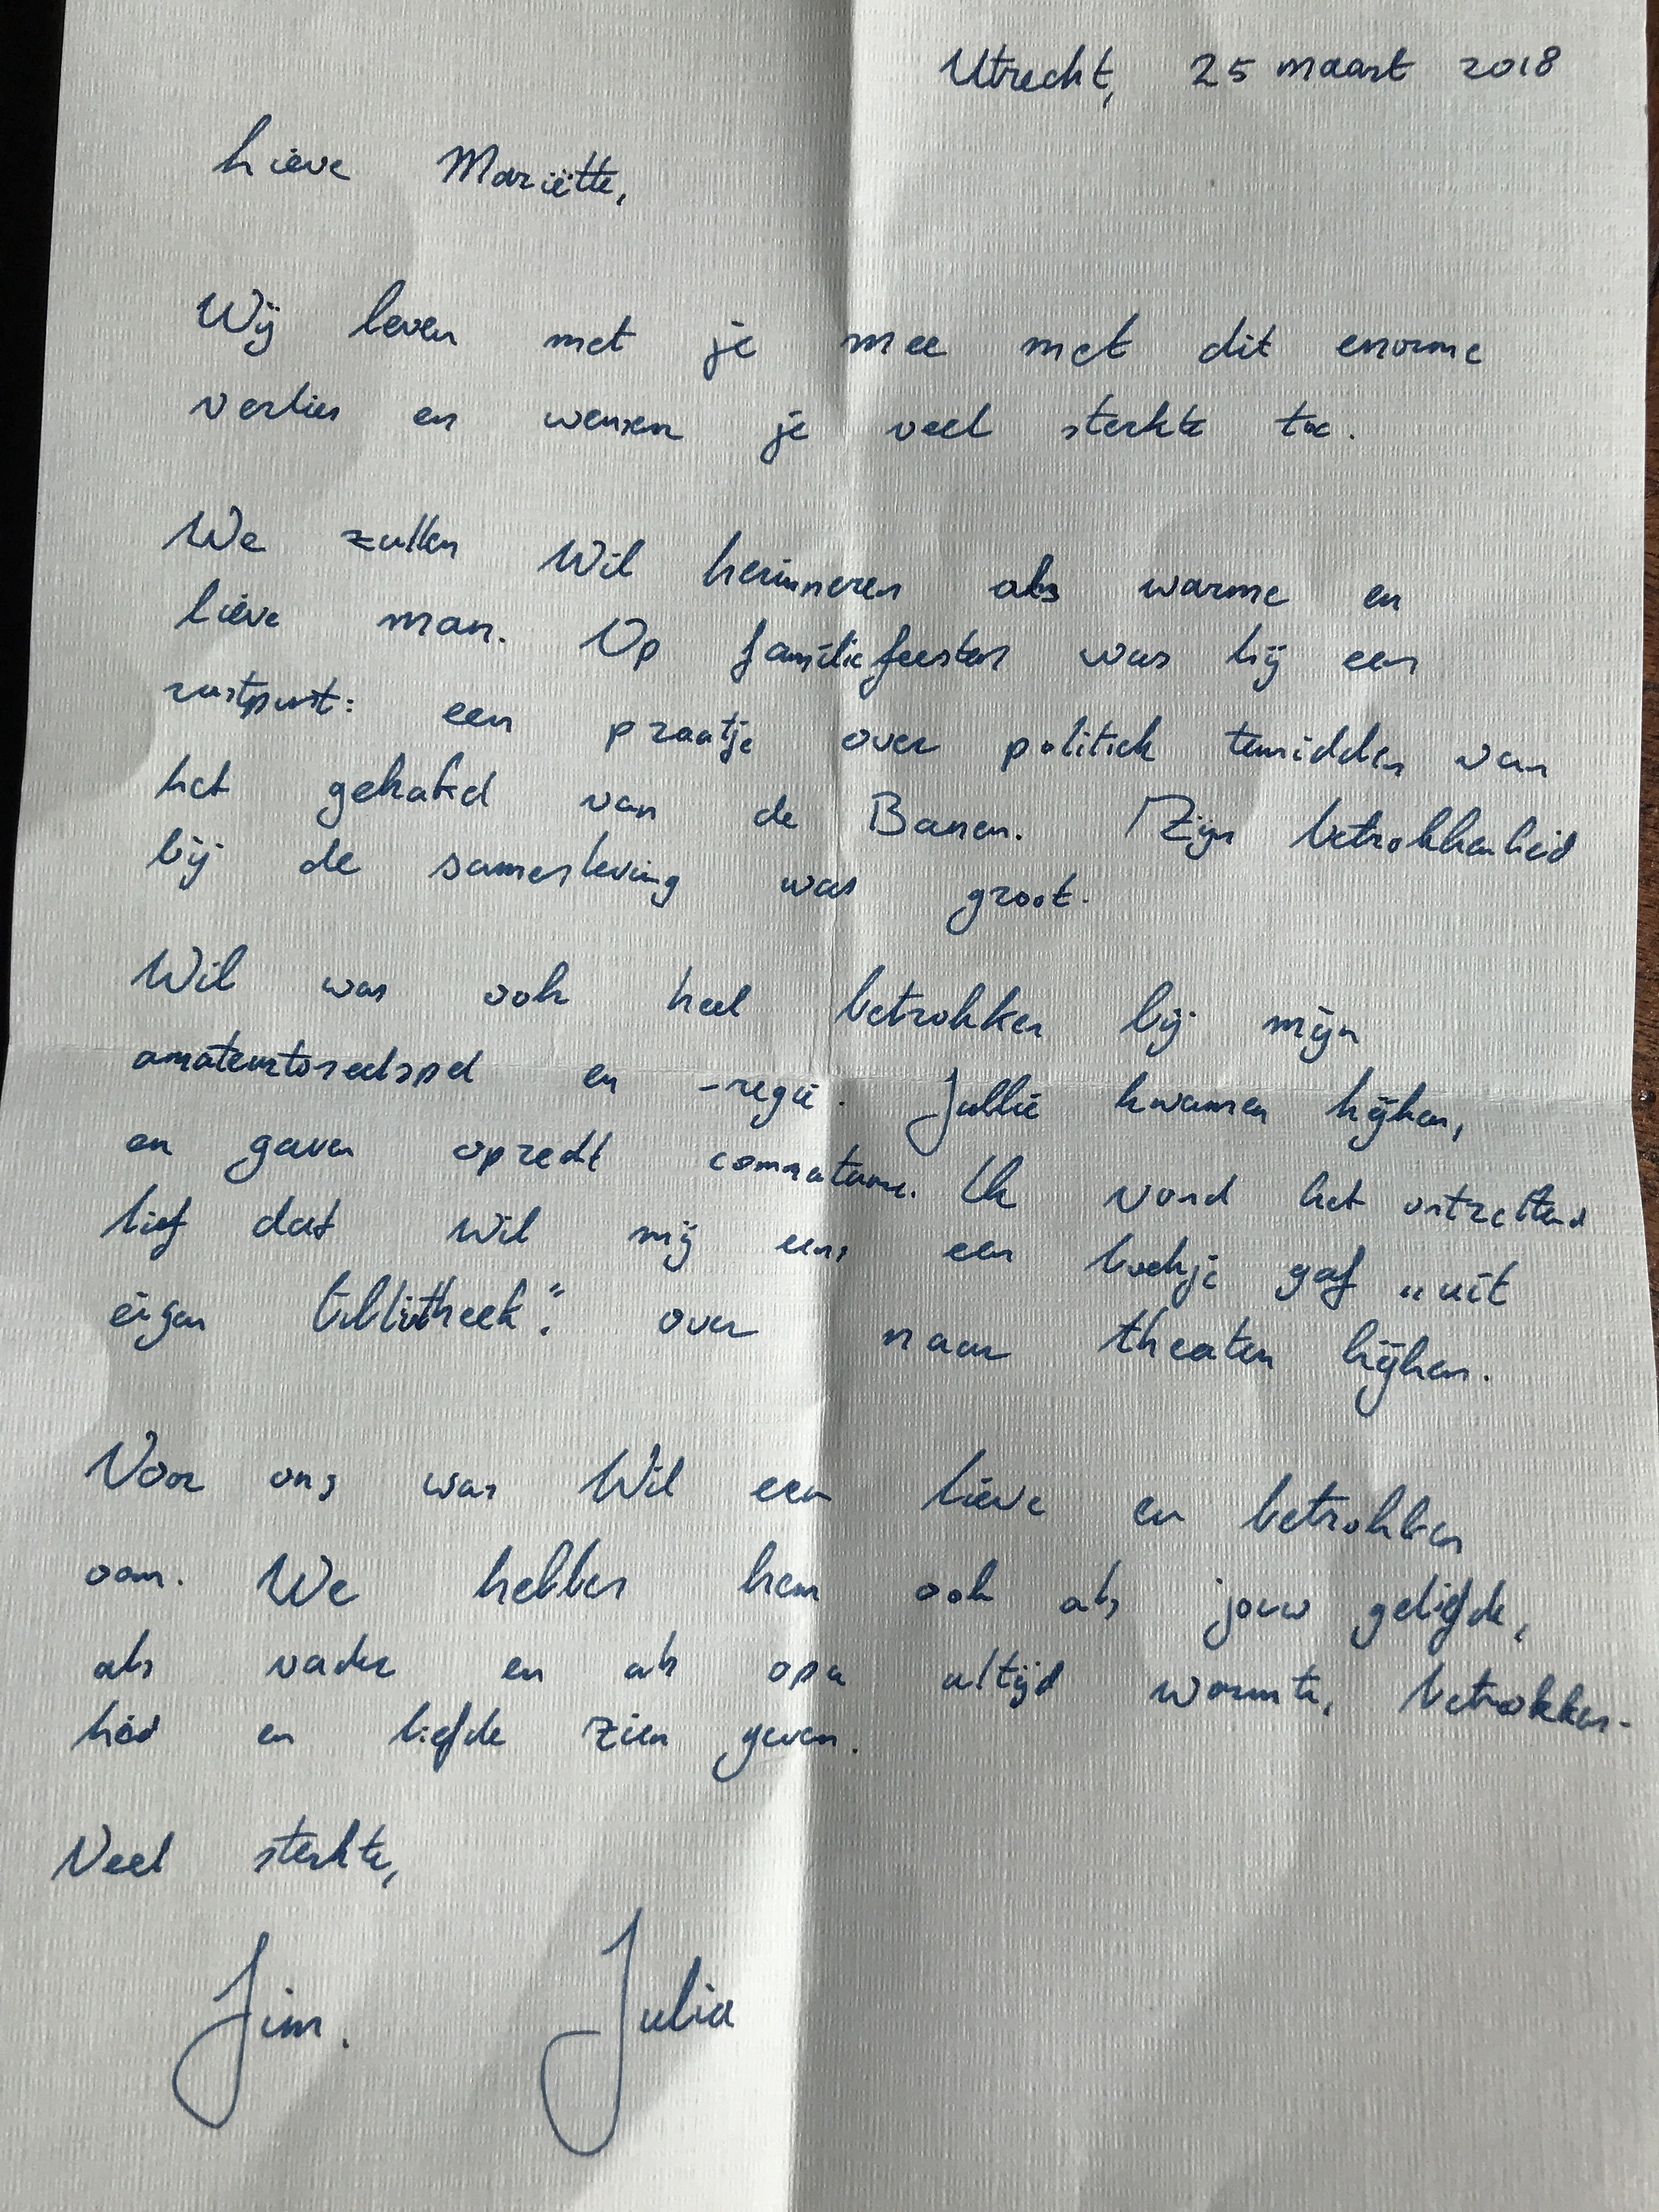 Utrecht, 25 maart 2018
Lieve Mariëtte,
Wij leven met je mee met dit enorme
verlies en wensen je veel sterkte toe.
We zullen Wil herinneren als warme en
lieve man. Op familiefeesten was hij een
rustpunt: een praatje over politiek temidden van
het gekakel van de Banen. Zijn betrokkenheid
bij de samenleving was groot.
Wil was ook heel betrokken bij mijn
amateurtoneelspel en -regie. Jullie kwamen kijken,
en gaven oprecht commentaar. Ik vond het ontzettend
lief dat Wil mij eens een boekje gaf „uit
eigen bibliotheek”: over naar theater kijken.
Voor ons was Wil een lieve en betrokken
oom. We hebben hem ook als jouw geliefde,
als vader en als opa altijd warmte, betrokken-
heid en liefde zien geven.
Veel sterkte,
Jim. Julia